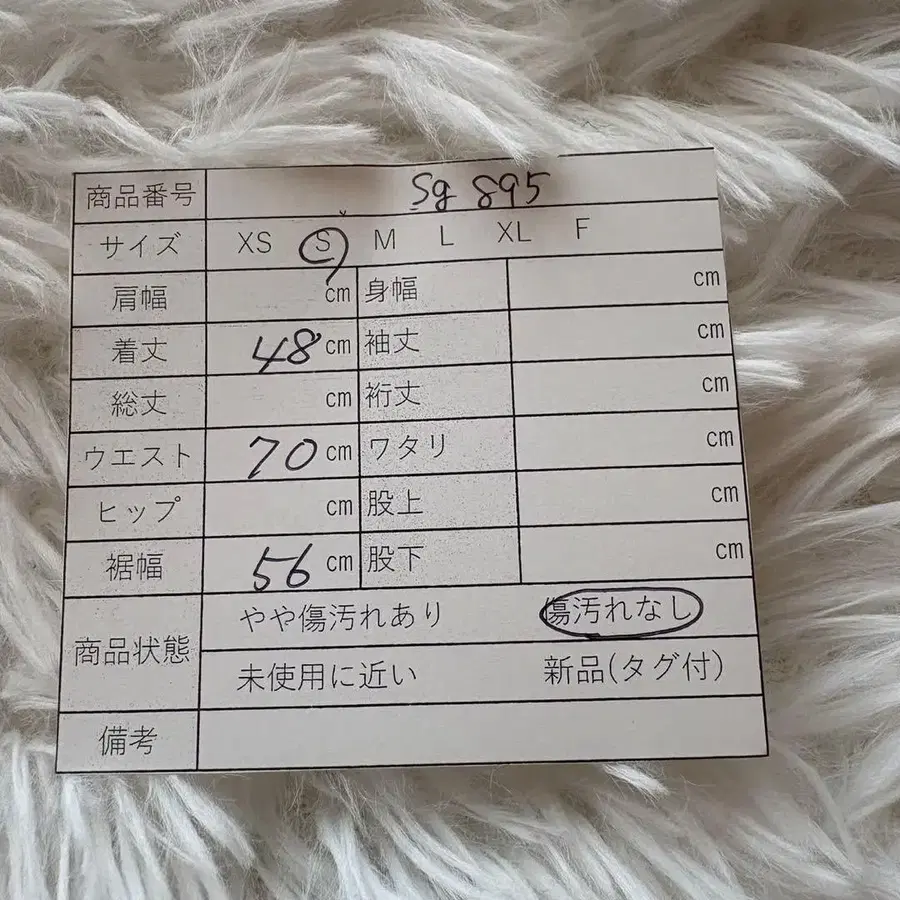 商品番号 Sg 895
サイズ XS S M L XL F
肩幅 cm 身幅 cm
着丈 48 cm 袖丈 cm
総丈 cm 裄丈 cm
ウエスト 70 cm ワタリ cm
ヒップ cm 股上 cm
裾幅 56 cm 股下 cm
商品状態 やや傷汚れあり 傷汚れなし
未使用に近い 新品(タグ付)
備考